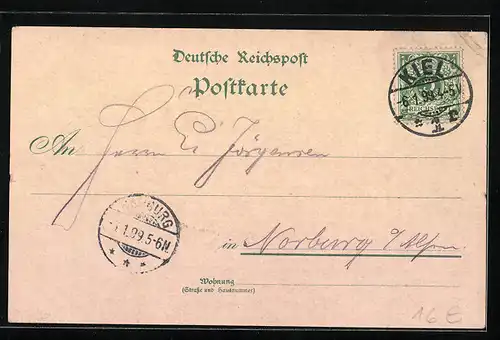 Deutsche Reichspost
Postkarte
KIEL
6.1.99.
REICHS
An Herrn Jörgensen
BURG
1.99.5-6N
in Norburg a/Alsen.
Wohnung
(Straße und Hausnummer)
16 €